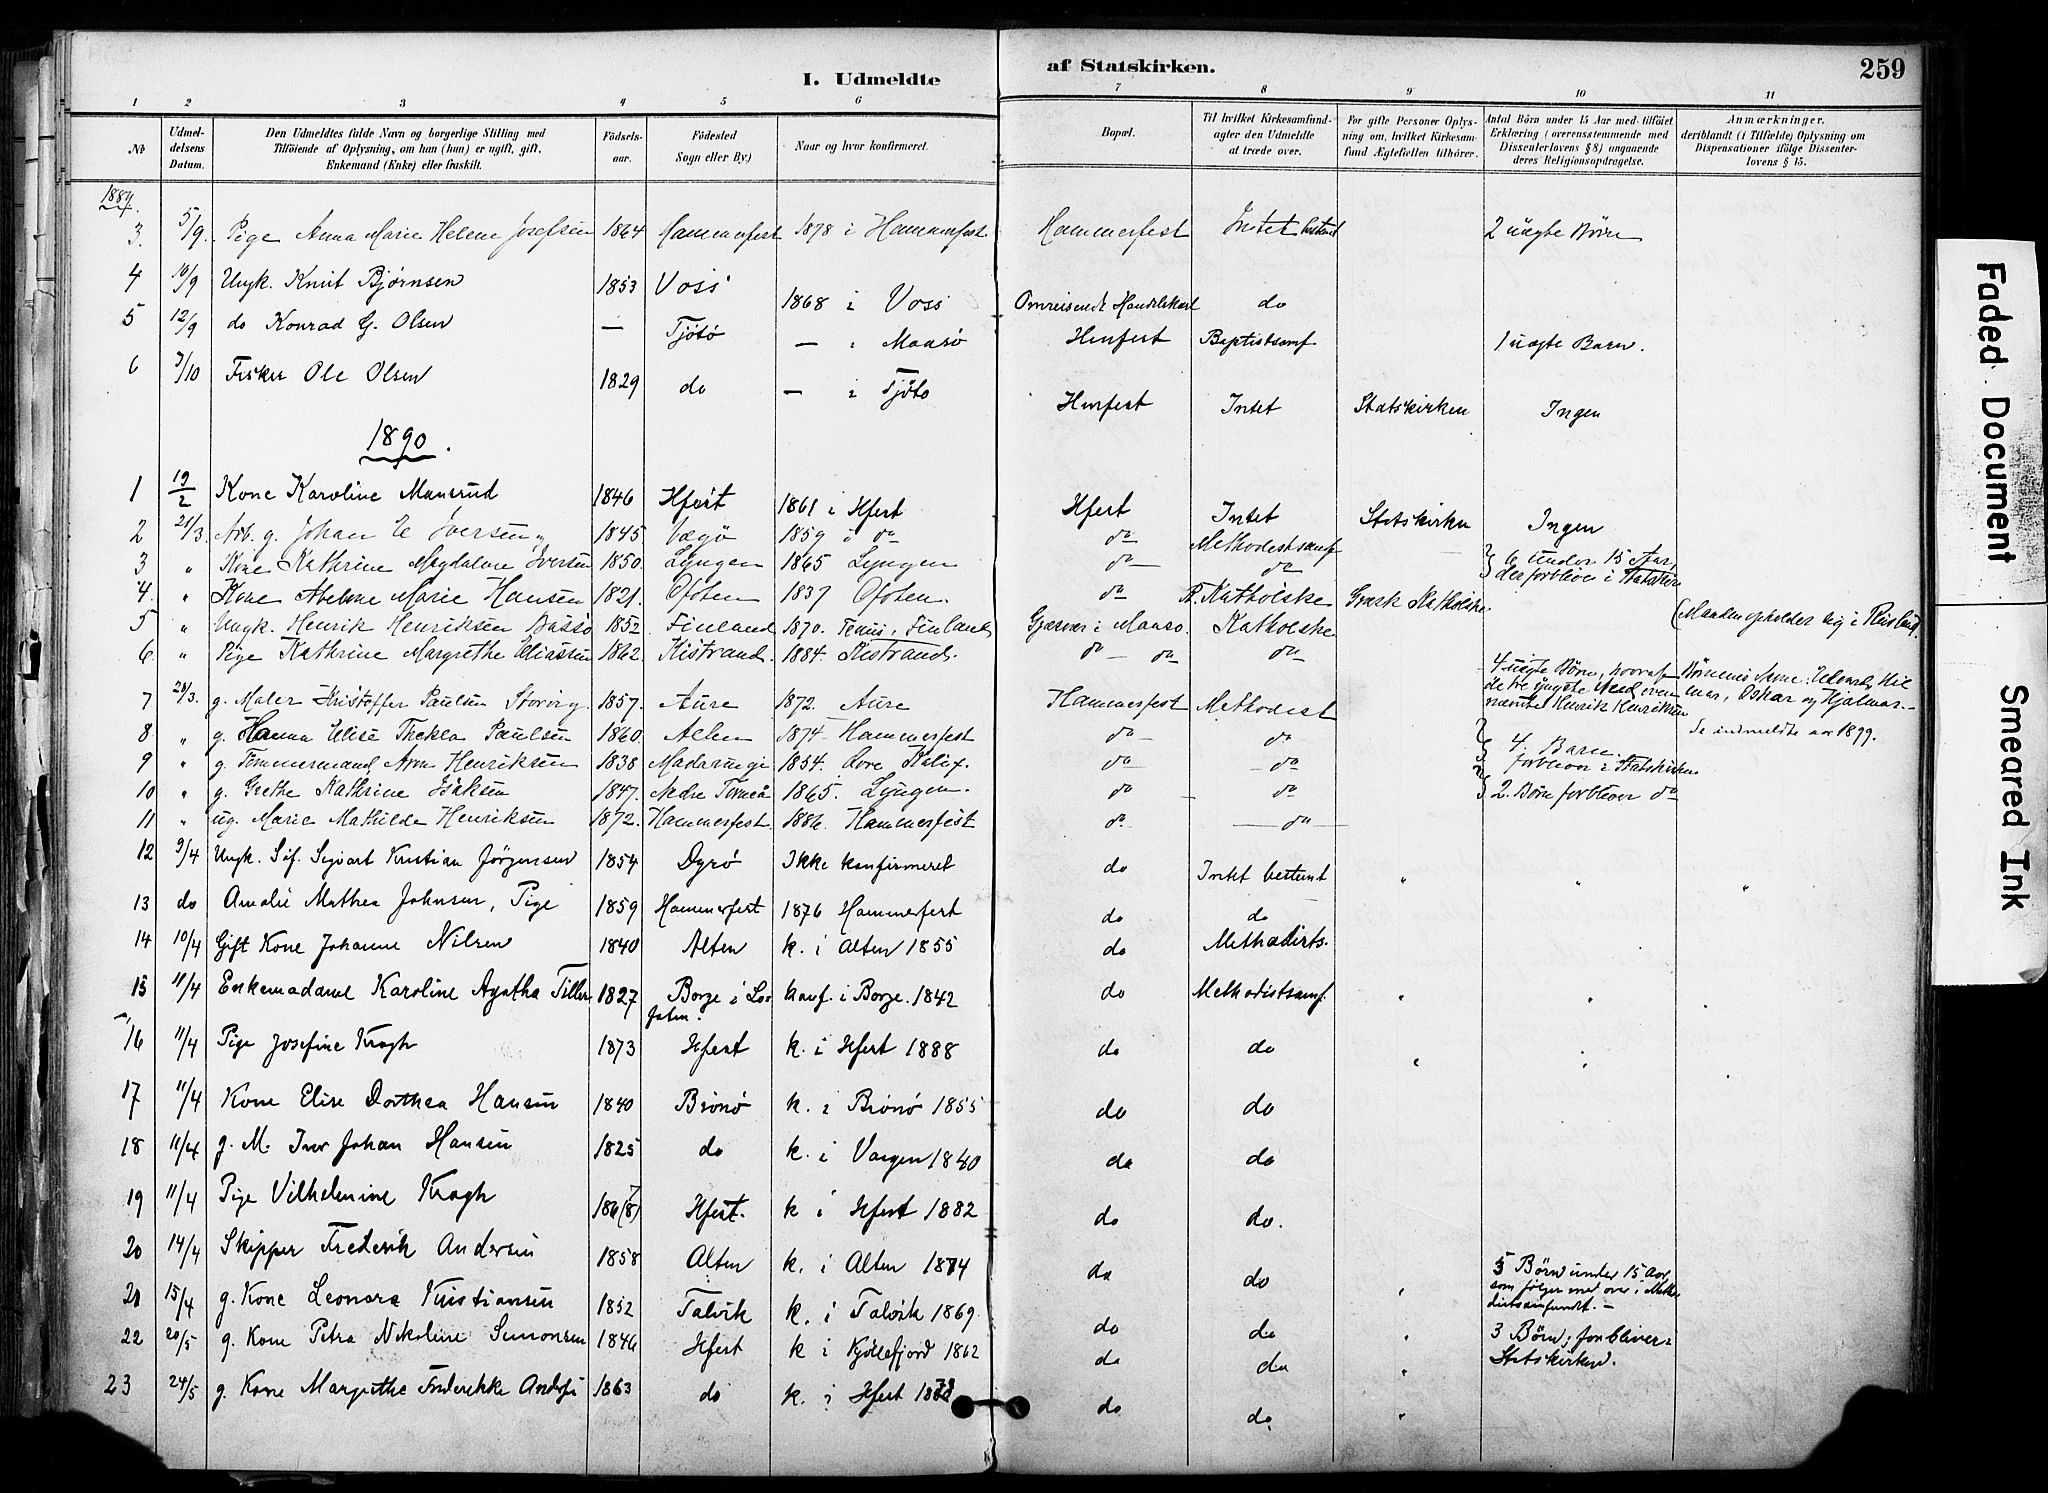 I. Udmeldte af Statskirken. 259
1 2 3 4 5 6 7 8 9 10 11
No Udmeldelsens Datum. Den Udmeldtes fulde Navn og borgerlige Stilling med Tilføiende af Oplysning, om han (hun) er ugift, gift, Enkemand (Enke) eller fraskilt. Fødselsaar. Fødested Sogn eller By) Naar og hvor konfirmeret. Bopæl. Til hvilket Kirkesamfund agter den Udmeldte at træde over. For gifte Personer Oplysning om, hvilket Kirkesamfund Ægtefællen tilhører. Antal Börn under 15 Aar med tilføiet Erklæring (overensstemmende med Dissenterlovens § 8) angaaende deres Religionsopdragelse. Anmærkninger, deriblandt (i Tilfælde) Oplysning om Dispensationer ifölge Dissenterlovens § 15.
1889.
3. 5/9. Pige Anna Marie Helene Josefsen 1864 Hammerfest 1878 i Hammerfest. Hammerfest Intet bestemt 2 uægte Börn
4 10/9 Ungk. Knut Bjørnsen 1853 Voss 1868 i Voss Omreisende Handelskarl do
5 12/9 do Konrad G. Olsen — Tjøtø — i Maasø Hmfest Baptistsamf 1 uægte Barn.
6 3/10 Fisker Ole Olsen 1829 do — i Tjøtø Hmfest Intet Statskirken Ingen
1890.
1 19/2 Kone Karoline Mansrud 1846 Hfest 1861 i Hfest Hfest Intet Statskirken Ingen
2 21/3 Arb. g. Johan E Iversen 1845 Vægø 1859 i do do Methodistsamf
3 " Kone Kathrine Magdalene Iversen 1850 Lyngen 1865 Lyngen do do 6 under 15 Aar, der forbliver i Statskirken
4. " Kone Abelone Marie Hansen 1821. Ofoten 1837 Ofoten. do R. Katholske Græsk Katholske. (Manden opholder sig i Rusland
5 " Ungk. Henrik Henriksen Basso 1852. Finland 1870. Finland Gjæsvær i Maasø. Katholske
6 " Pige Kathrine Margrethe Eliassen 1862. Kistrand. 1884. Kistrand. do do do 4 uægte Börn, hvoraf de tre yngste med ovennævnte Henrik Henriksen Börnenes Navne: Edvard, Hilmar, Oskar og Hjalmar.
7 28/3. g. Maler Kristoffer Paulsen Storvig 1857. Aure 1872. Aure Hammerfest Methodist de indmeldte 1899.
8. " g. Hanna Elise Thekla Paulsen 1860. Alten 1874 Hammerfest do do 4. Barn. forbliver i Statskirken
9 " g. Tømmermand Henriksen 1838 1854. Kalix. do do
10 " g. Grethe Kathrine Isaksen 1847. Nedre Torneå 1865. Lyngen. do do 2. Börn forbliver do
11 " ug. Marie Mathilde Henriksen 1872. Hammerfest. 1886. Hammerfest do do
12 9/4 Ungk. Sif. Sigvart Kristian Jørgensen 1854 Dyrø Ikke konfirmeret do Intet bestemt " " "
13 do Amalie Mathea Johnsen, Pige 1859 Hammerfest 1876 Hammerfest do do
14 10/4 Gift Kone Johanne Nilsen 1840 Alten k. i Alten 1855 do Methodists.
15 11/4 Enkemadame Karoline Agatha Tiller 1827 Borge i Lofoten. konf. i Borge. 1842 do Methodistsamf. " "
16 11/4 Pige Josefine Krogh 1873 Hfest k. i Hfest 1888 do do "
17 11/4 Kone Elise Dorthea Hansen 1840 Brønø k. i Brønø 1855 do do
18 11/4 g. M. Johan Hansen 1825 do k. i Vaagen 1840 do do
19 11/4 Pige Vilhelmine Krogh 186(8) 7 Hfest. k i Hfest 1882 do do.
20 14/4 Skipper Frederik Andersen 1858 Alten k. i Alten 1874 do do 5 Börn under 15 Aar, som følger med over i Methodistsamfundet. —
21 15/4 g. Kone Leonora Kristiansen 1852 Talvik k. i Talvik 1869. do do "
22 20/5 g. Kone Petra Nikoline Simonsen 1846 Hfest k i Kjøllefjord 1862 do do " 3 Börn; forbliver i Statskirken.
23 24/5 g. Kone Margrethe Frederikke 1863 do k. i Hfest do do "
Faded Document
Smeared Ink